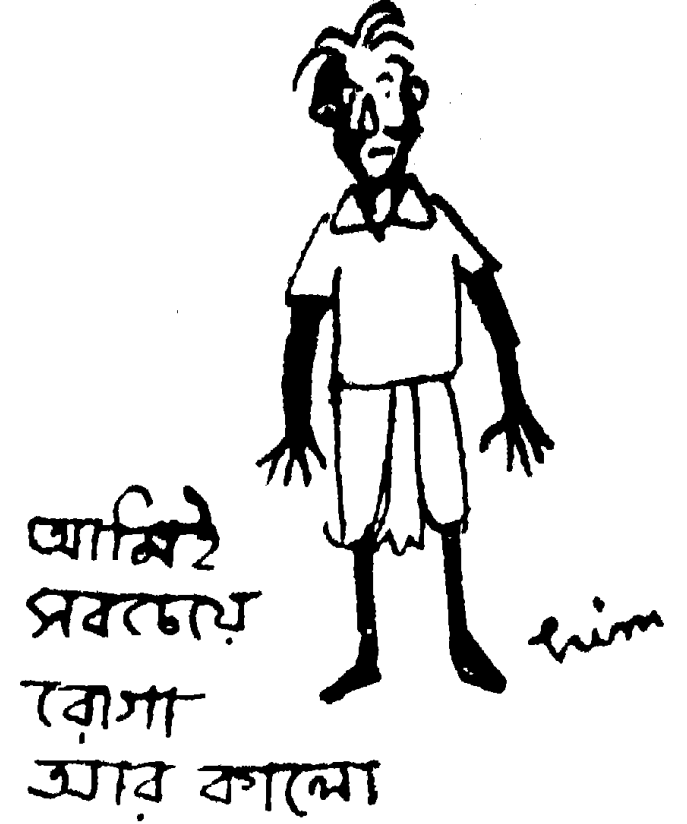 আমিই
সবচেয়ে
রোগা
আর কালো
him